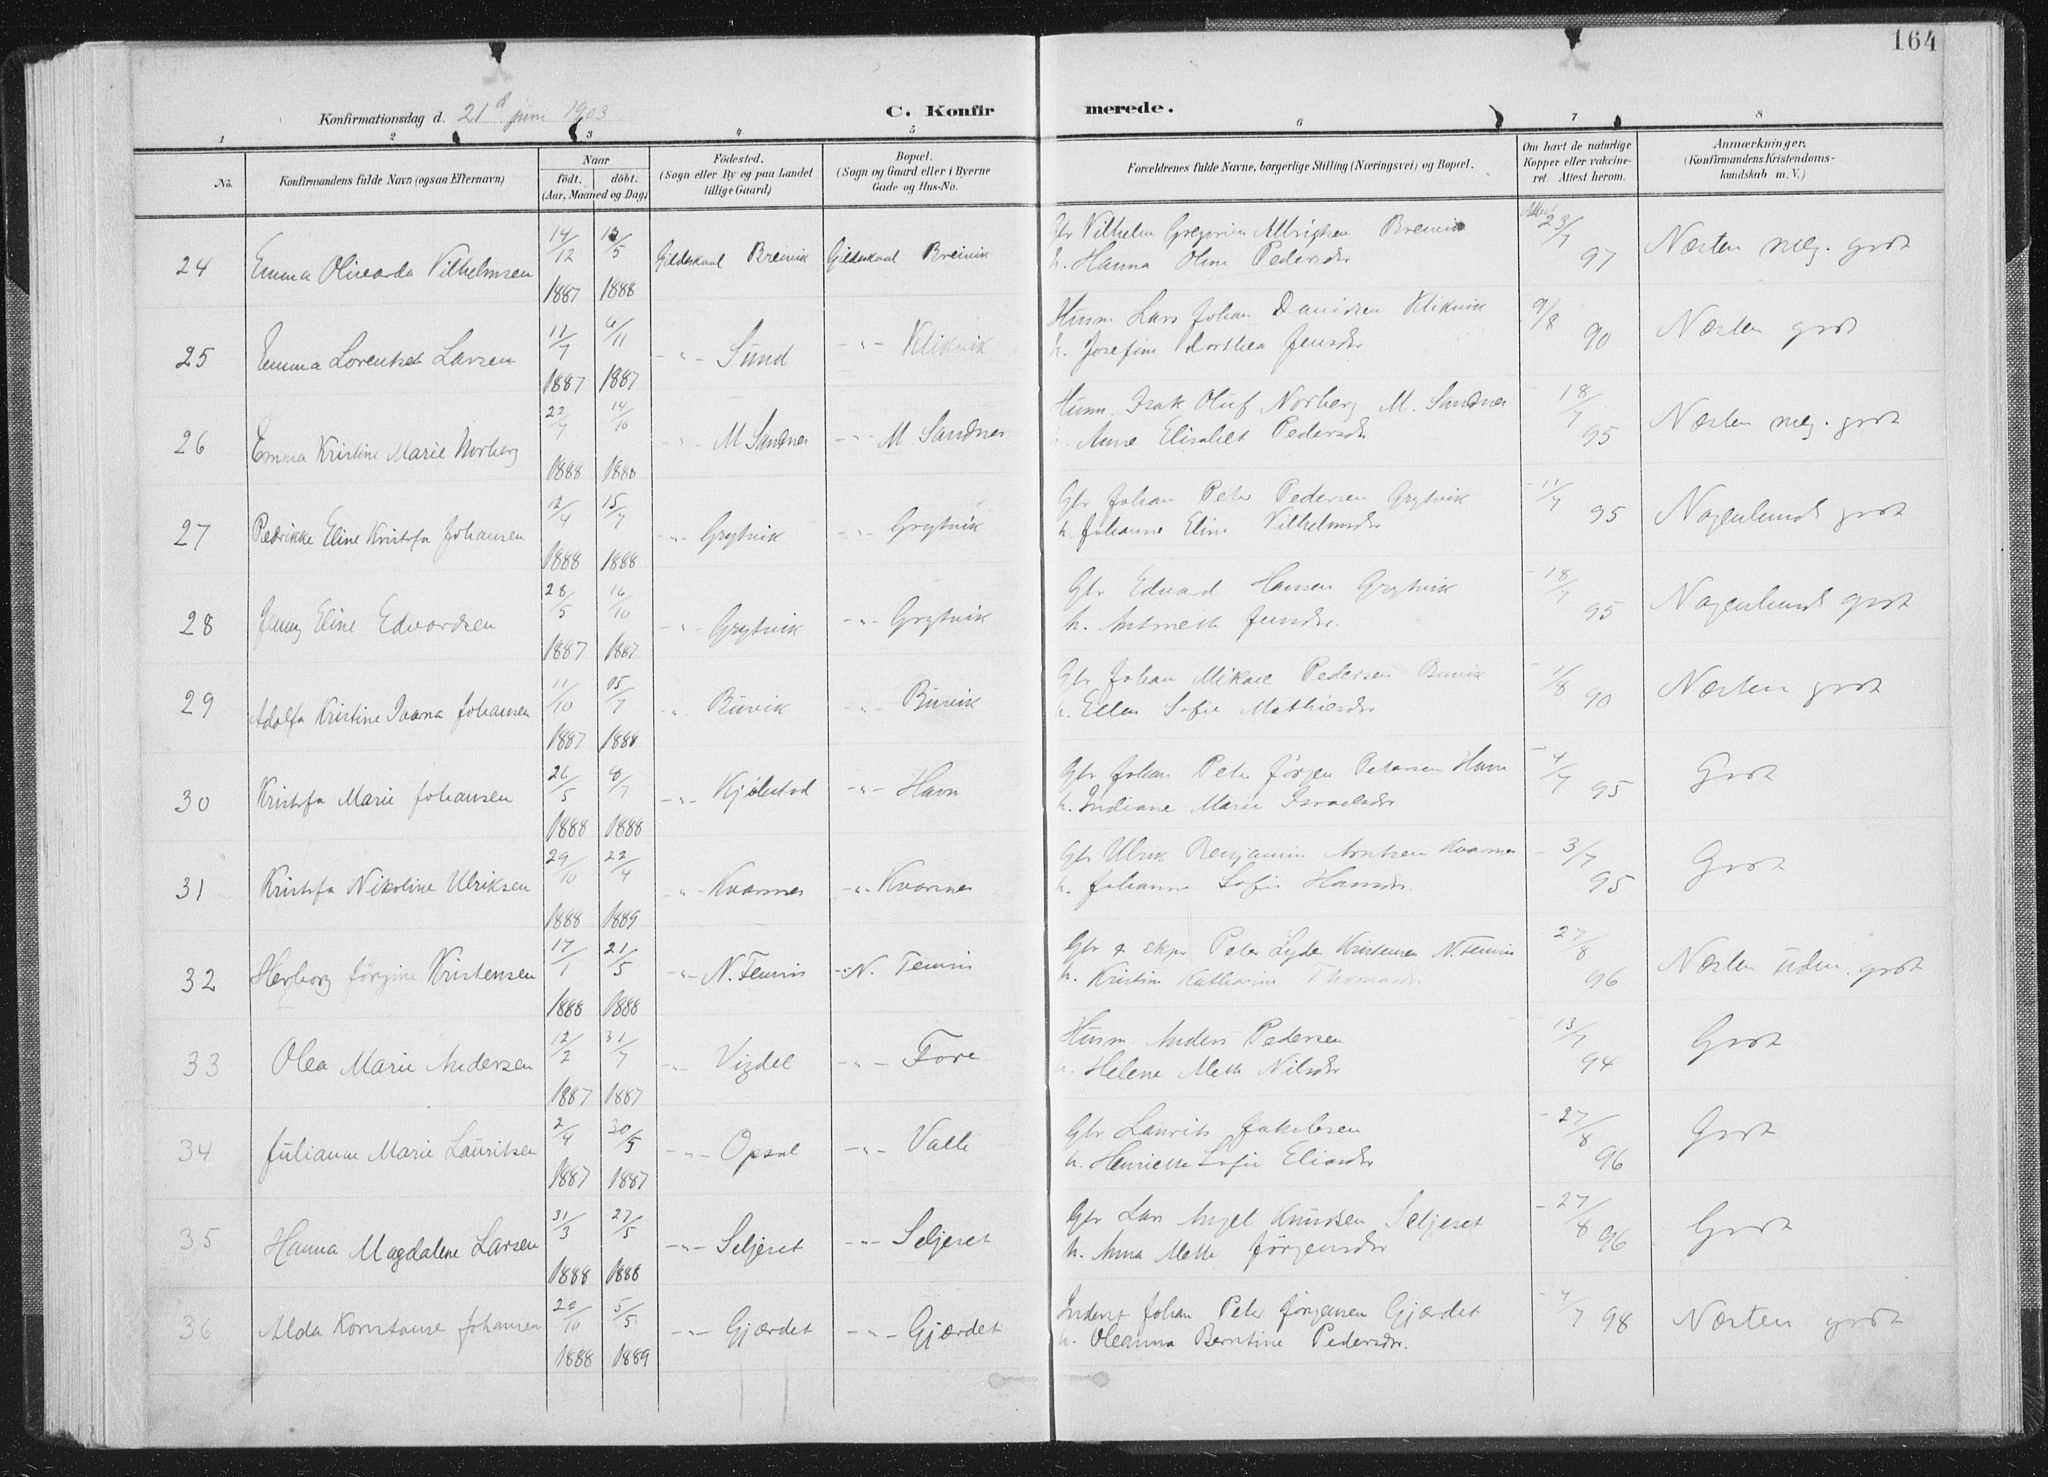 164
Konfirmationsdag d. 21d juni 1903
C. Konfirmerede.
1 2 3 4 5 6 7 8
No.
Konfirmandens fulde Navn (ogsaa Efternavn)
Naar
født. døbt.
(Aar, Maaned og Dag)
Fødested.
(Sogn eller By og paa Landet
tillige Gaard)
Bopæl.
(Sogn og Gaard eller i Byerne
Gade og Hus-No.
Forældrenes fulde Navne, borgerlige Stilling (Næringsvei) og Bopæl.
Om havt de naturlige
Kopper eller vakcine-
ret. Attest herom.
Anmærkninger.
(Konfirmandens Kristendoms-
kundskab m. V.)
24 Emma Olivarda Vilhelmsen 14/12 1887 13/5 1888 Gildeskaal Breivik Gildeskaal Breivik
Gbr Vilhelm Gregorius Albrigtsen Breivik
h. Hanna Oline Pedersdr
Attest 23/7 97 Næsten meg. godt
25 Emma Lorentse Larsen 11/7 1887 6/11 1887 -"- Sund -"- Klikvik
Husm Lars Johan Danielsen Klikvik
h. Josefine Dorthea Jensdr
9/8 90 Næsten godt
26 Emma Kristine Marie Norberg 22/7 1888 14/10 1888 -"- M. Sandnes -"- M. Sandnes
Husm. Isak Oluf Norberg M. Sandnes
h. Anne Elisabet Pedersdr
18/7 95 Næsten meg. godt
27 Pedrikke Eline Kristofa Johansen 12/4 1888 15/7 1888 -"- Grytvik -"- Grytvik
Gbr Johan Peter Pedersen Grytvik
h. Johanne Eline Vilhelmsdr
- 11/7 95 Nogenlunde godt
28 Jenny Eline Edvardsen 28/5 1887 16/10 1887 -"- Grytvik -"- Grytvik
Gbr Edvard Hansen Grytvik
h. Antonette Jensdr.
- 18/7 95 Nogenlunde godt
29 Adolfa Kristine Ivarna Johansen 11/10 1887 15/7 1888 " Buvik " Buvik
Gbr Johan Mikael Pedersen Buvik
h. Ellen Sofie Mathiesdr
- 1/8 90 Næsten godt
30 Kristofa Marie Johansen 26/5 1888 8/7 1888 -"- Kjølstad -"- Havn
Gbr Johan Peter Jørgen Petersen Havn
h. Indiane Marie Israelsdr
- 4/7 95 Godt
31 Kristofa Nikoline Ulriksen 29/10 1888 22/4 1889 -"- Kvarnes -"- Kvarnes
Gbr Ulrik Benjamin Arntsen Kvarnes
h. Johanna Sofie Hansdr.
- 3/7 95 Godt
32 Herborg Jørgine Kristensen 17/1 1888 21/5 1888 -"- N. Femris -"- N. Femris
Gbr & skpr Peter Lyder Kristensen N. Femris
h. Kristine Katharine Thomasdr
- 27/8 96 Næsten udm. godt
33 Olea Marie Andersen 12/2 1887 31/7 1887 -"- Vigdel -"- Fore
Husm. Anders Pedersen
h. Helene Mette Nilsdr
- 13/7 94 Godt
34 Julianne Marie Lauritsen 2/4 1887 30/5 1887 -"- Opsal -"- Valle
Gbr Laurits Jakobsen
h. Henriette Sofie Eliasdr
- 27/8 96 Godt
35 Hanna Magdalene Larsen 31/3 1888 27/5 1888 -"- Seljeset -"- Seljeset
Gbr Lars Angel Knudsen Seljeset
h. Anna Mette Jørgensdr
- 27/8 96 Godt
36 Alda Konstanse Johansen 22/10 1888 5/5 1889 -"- Gjærdet -"- Gjærdet
Inderst Johan Peter Jørgensen Gjærdet
h. Oleanna Berntine Pedersdr.
- 4/7 98 Næsten godt